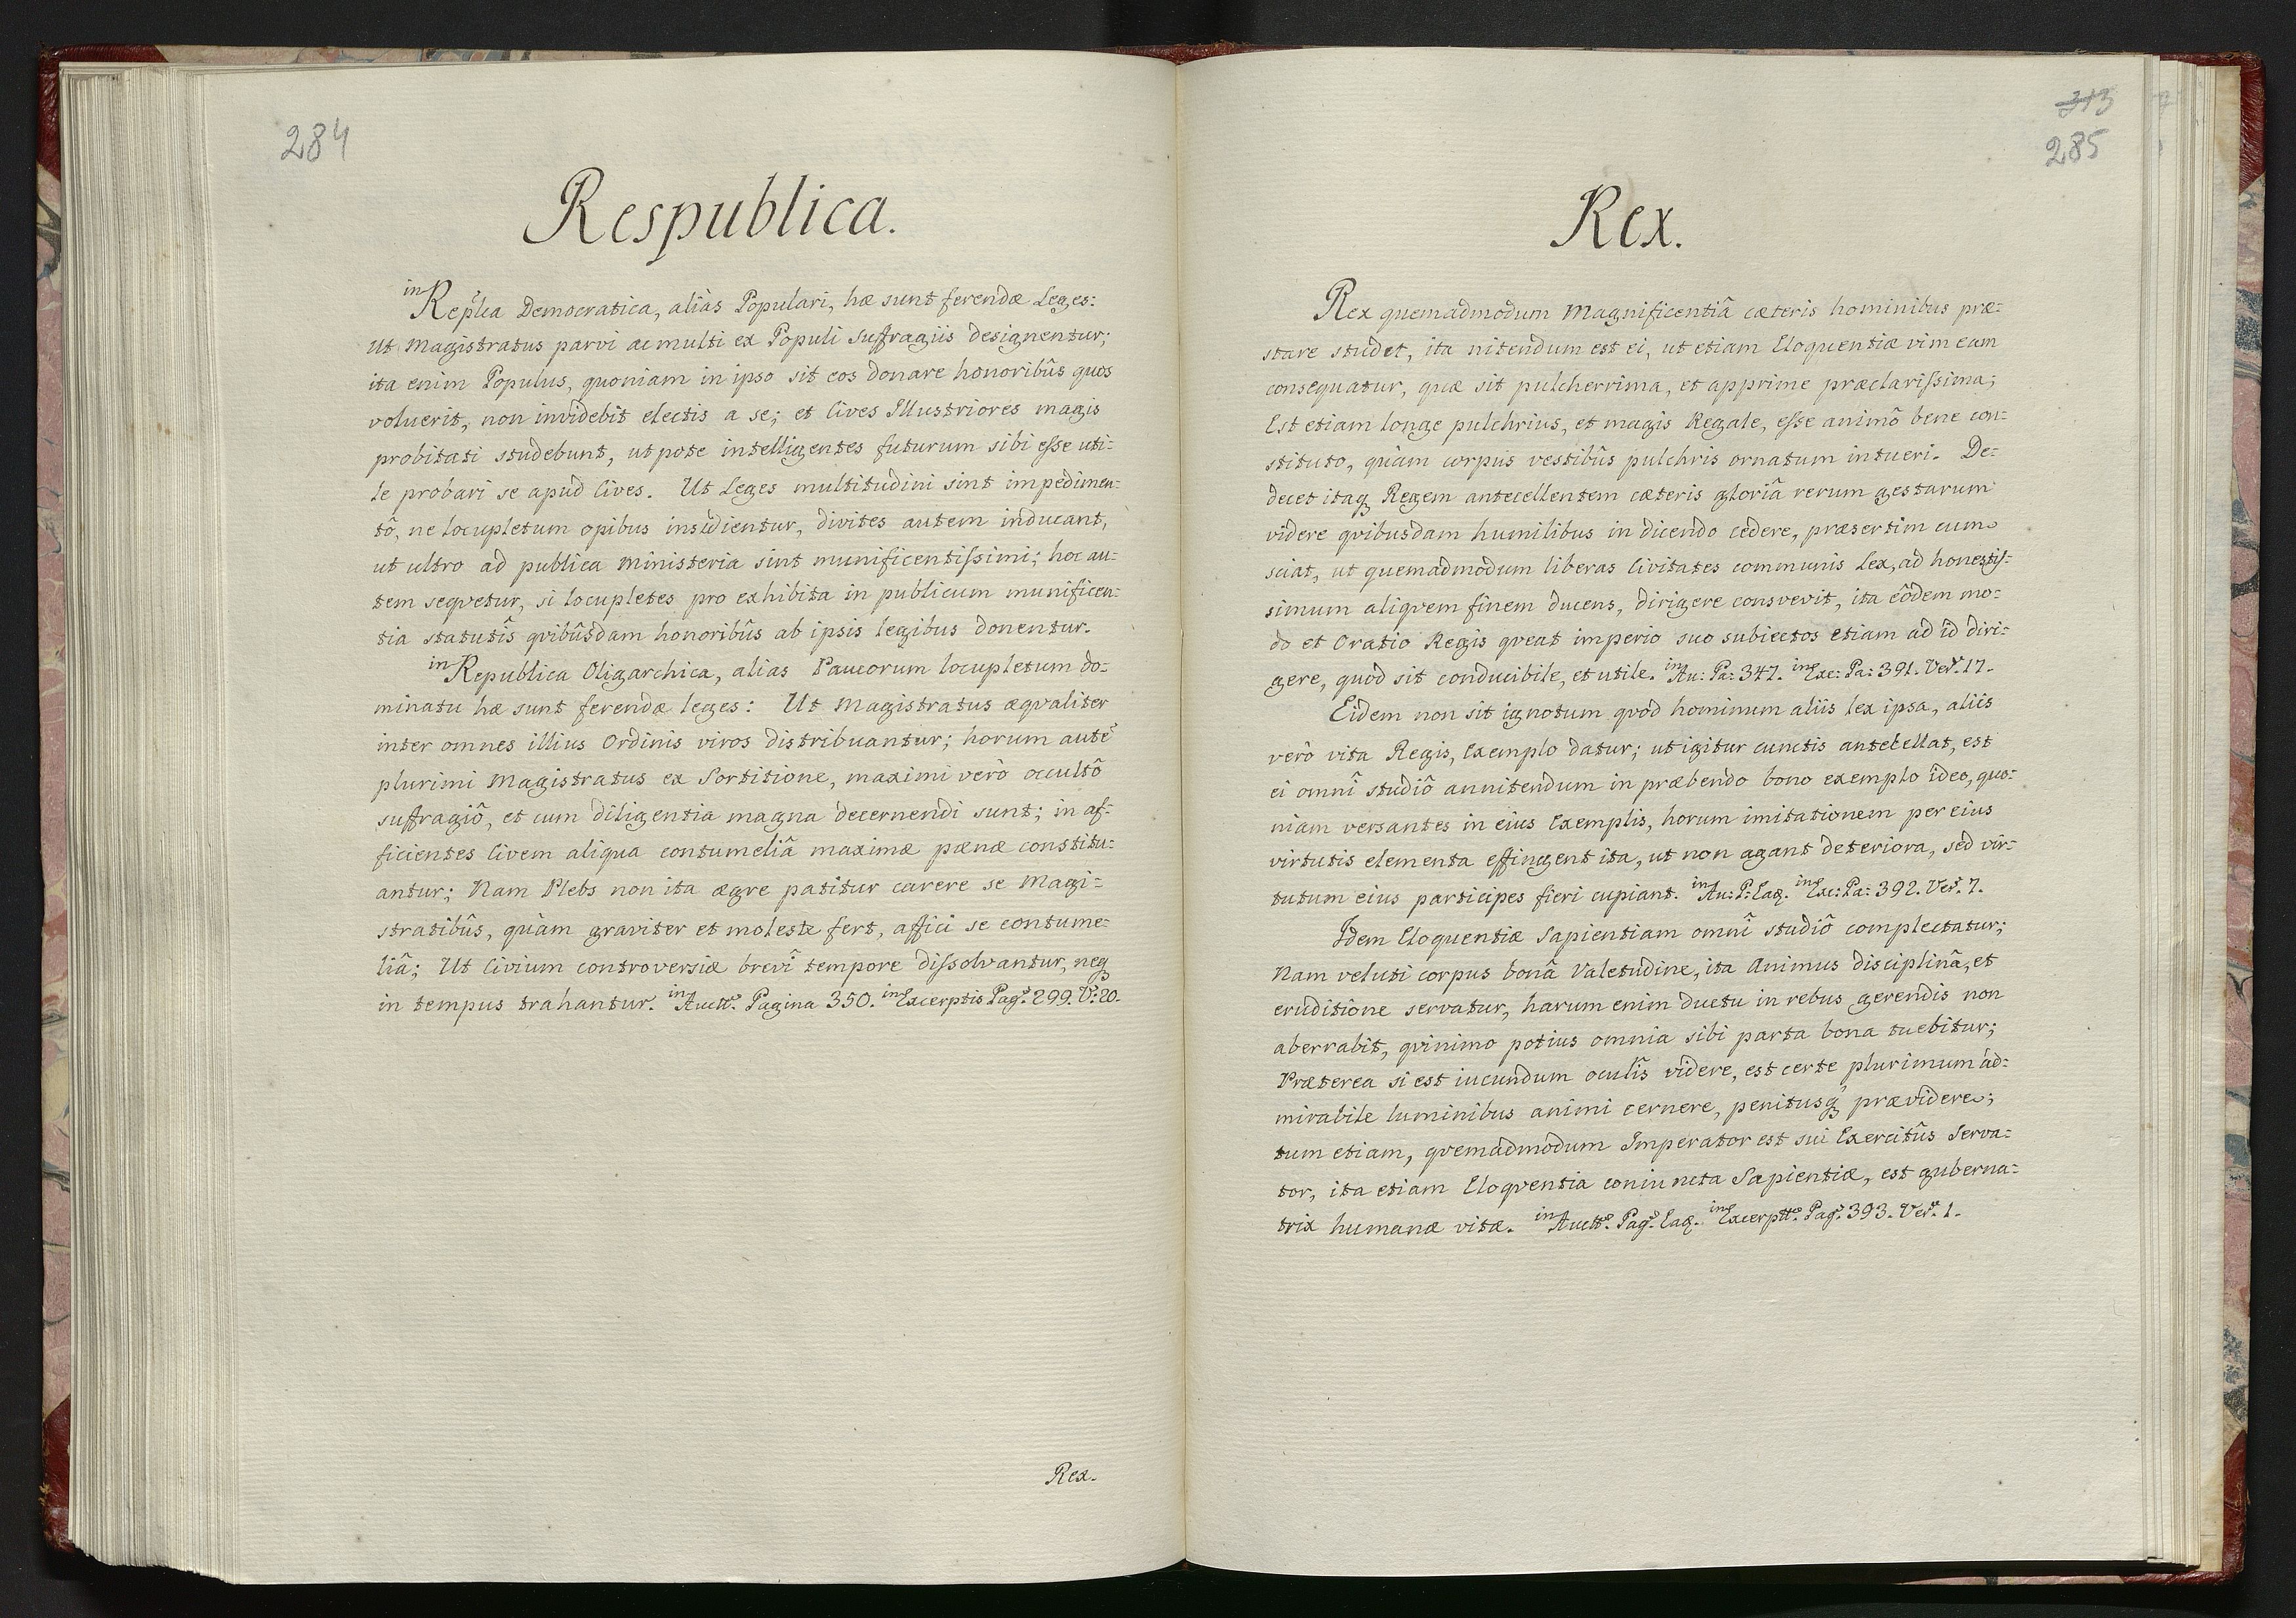 284
Respublica.
in Rep̃lca Democratica, aliàs Populari, hæ sunt ferendæ Leges:
Ut Magistratus parvi ac multi ex Populi suffragiis designentur;
ita enim Populus, quoniam in ipso sit eos donare honoribûs quos
voluerit, non invidebit electis a se; et Cives Illustriores magis
probitati studebunt, utpote intelligentes futurum sibi esse uti=
le probari se apud Cives. Ut Leges multitudini sint impedimen=
tô, ne locupletum opibus insidientur, divites autem inducant,
ut ultro ad publica ministeria sint munificentissimi; hoc au=
tem seqvetur, si locupletes pro exhibita in publicum munificen=
tia statutîs qvibûsdam honoribûs ab ipsis legibus donentur.
in Republica Oligarchica, alias Paucorum locupletum do=
minatu hæ sunt ferendæ leges: Ut Magistratus æqvaliter
inter omnes illius Ordinis viros distribuantur; horum autẽ
plurimi Magistratus ex Sortitione, maximi verò occultô
suffragiô, et cum diligentia magna decernendi sunt; in af=
ficientes Civem aliqua contumeliâ maximæ pænæ constitu=
antur; Nam Plebs non ita ægre patitur carere se Magi=
stratibûs, quàm graviter et moleste fert, affici se contume=
liâ; Ut Civium controversiæ brevî tempore dissolvantur, neq
in tempus trahantur. in Auctt: Pagina 350. in Excerptis Pag: 299. V: 20.
Rex.
313
285
Rex.
Rex quemadmodum Magnificentiâ cæteris hominibus præ=
stare studet, ita nitendum est ei, ut etiam Eloquentiæ vim eam
consequatur, quæ sit pulcherrima, et apprime præclarissima;
Est etiam longe pulchrius, et magis Regale, esse animô bene con=
stituto, quàm corpus vestibûs pulchris ornatum intueri. De=
decet itaq Regem antecellentem cæteris gloriâ rerum gestarum
videre qvibusdam humilibus in dicendo cedere, præsertim cum
sciat, ut quemadmodum liberas Civitates communis Lex, ad honestis=
simum aliqvem finem ducens, dirigere consvevit, ita eôdem mo=
do et Oratio Regis qveat imperio suo subiectos etiam ad id diri=
gere, quod sit conducibile, et utile. in Au: Pa: 347. in Exc: Pa: 391. Ver: 17.
Eidem non sit ignotum qvod hominum aliis lex ipsa, aliis
verò vita Regis, Exemplo datur; ut igitur cunctis antecellat, est
ei omnî studiô annitendum in præbendo bono exemplo ideo, quo=
niam versantes in eius Exemplis, horum imitationem per eius
virtutis elementa effingent ita, ut non agant deteriora, sed vir=
tutum eius participes fieri cupiant. in Au: P: Eaq. in Exc: Pa: 392. Ver: 7.
Idem Eloquentiæ Sapientiam omnî studiô complectatur;
Nam veluti corpus bonâ Valetudine, ita Animus disciplinâ, et
eruditione servatur, harum enim ductu in rebus gerendis non
aberrabit, qvinimo potius omnia sibi parta bona tuebitur;
Præterea si est iucundum oculîs videre, est certe plurimum ad=
mirabile luminibus animi cernere, penitusq prævidere;
tum etiam, qvemadmodum Imperator est sui Exercitûs Serva=
tor, ita etiam Eloqventia coniuncta Sapientiæ, est guberna=
trix humanæ vitæ. in Auctt: Pag: Eaq. in Excerptt: Pag: 393. Ver: 1.